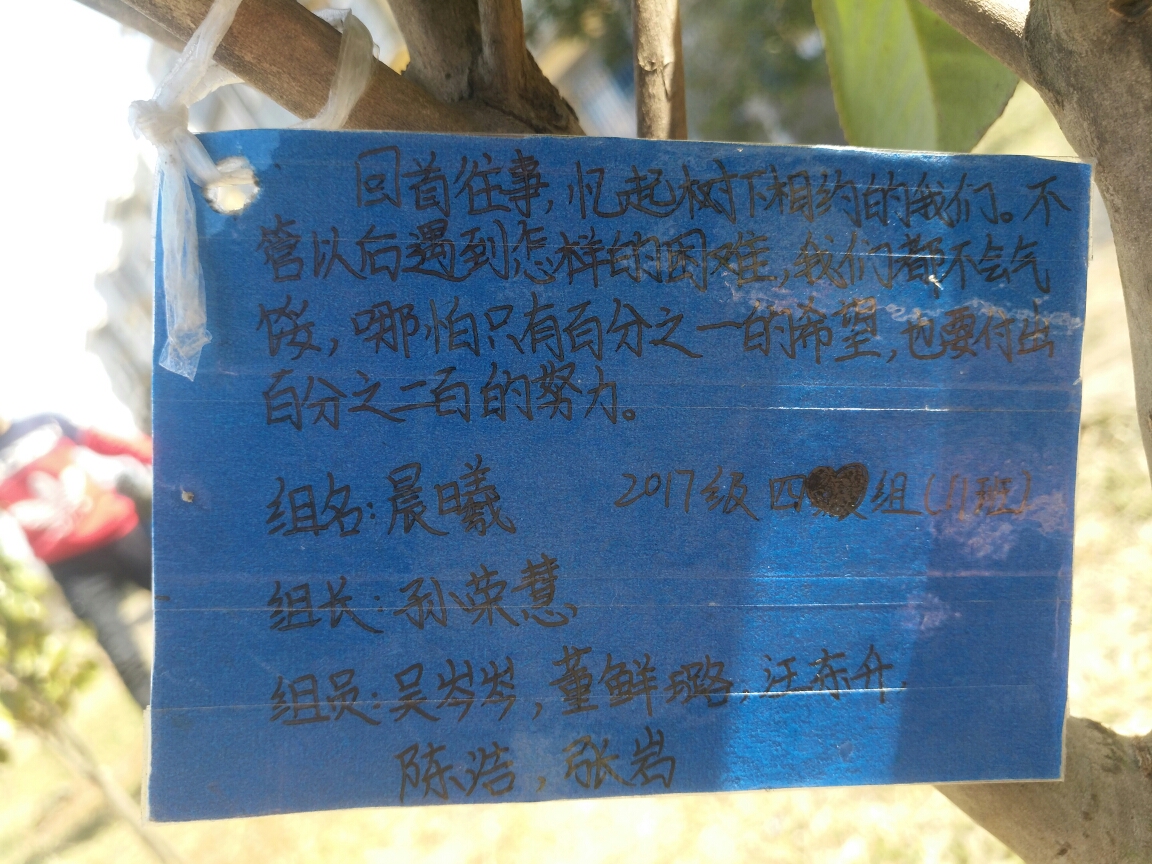 回首往事,忆起树下相约的我们。不
管以后遇到怎样的困难,我们都不会气
馁,哪怕只有百分之一的希望,也要付出
百分之二百的努力。
组名:晨曦 2017级四组(11班)
组长:孙荣慧
组员:吴岑岑,董鲜璐,汪东升.
陈浩,张岩